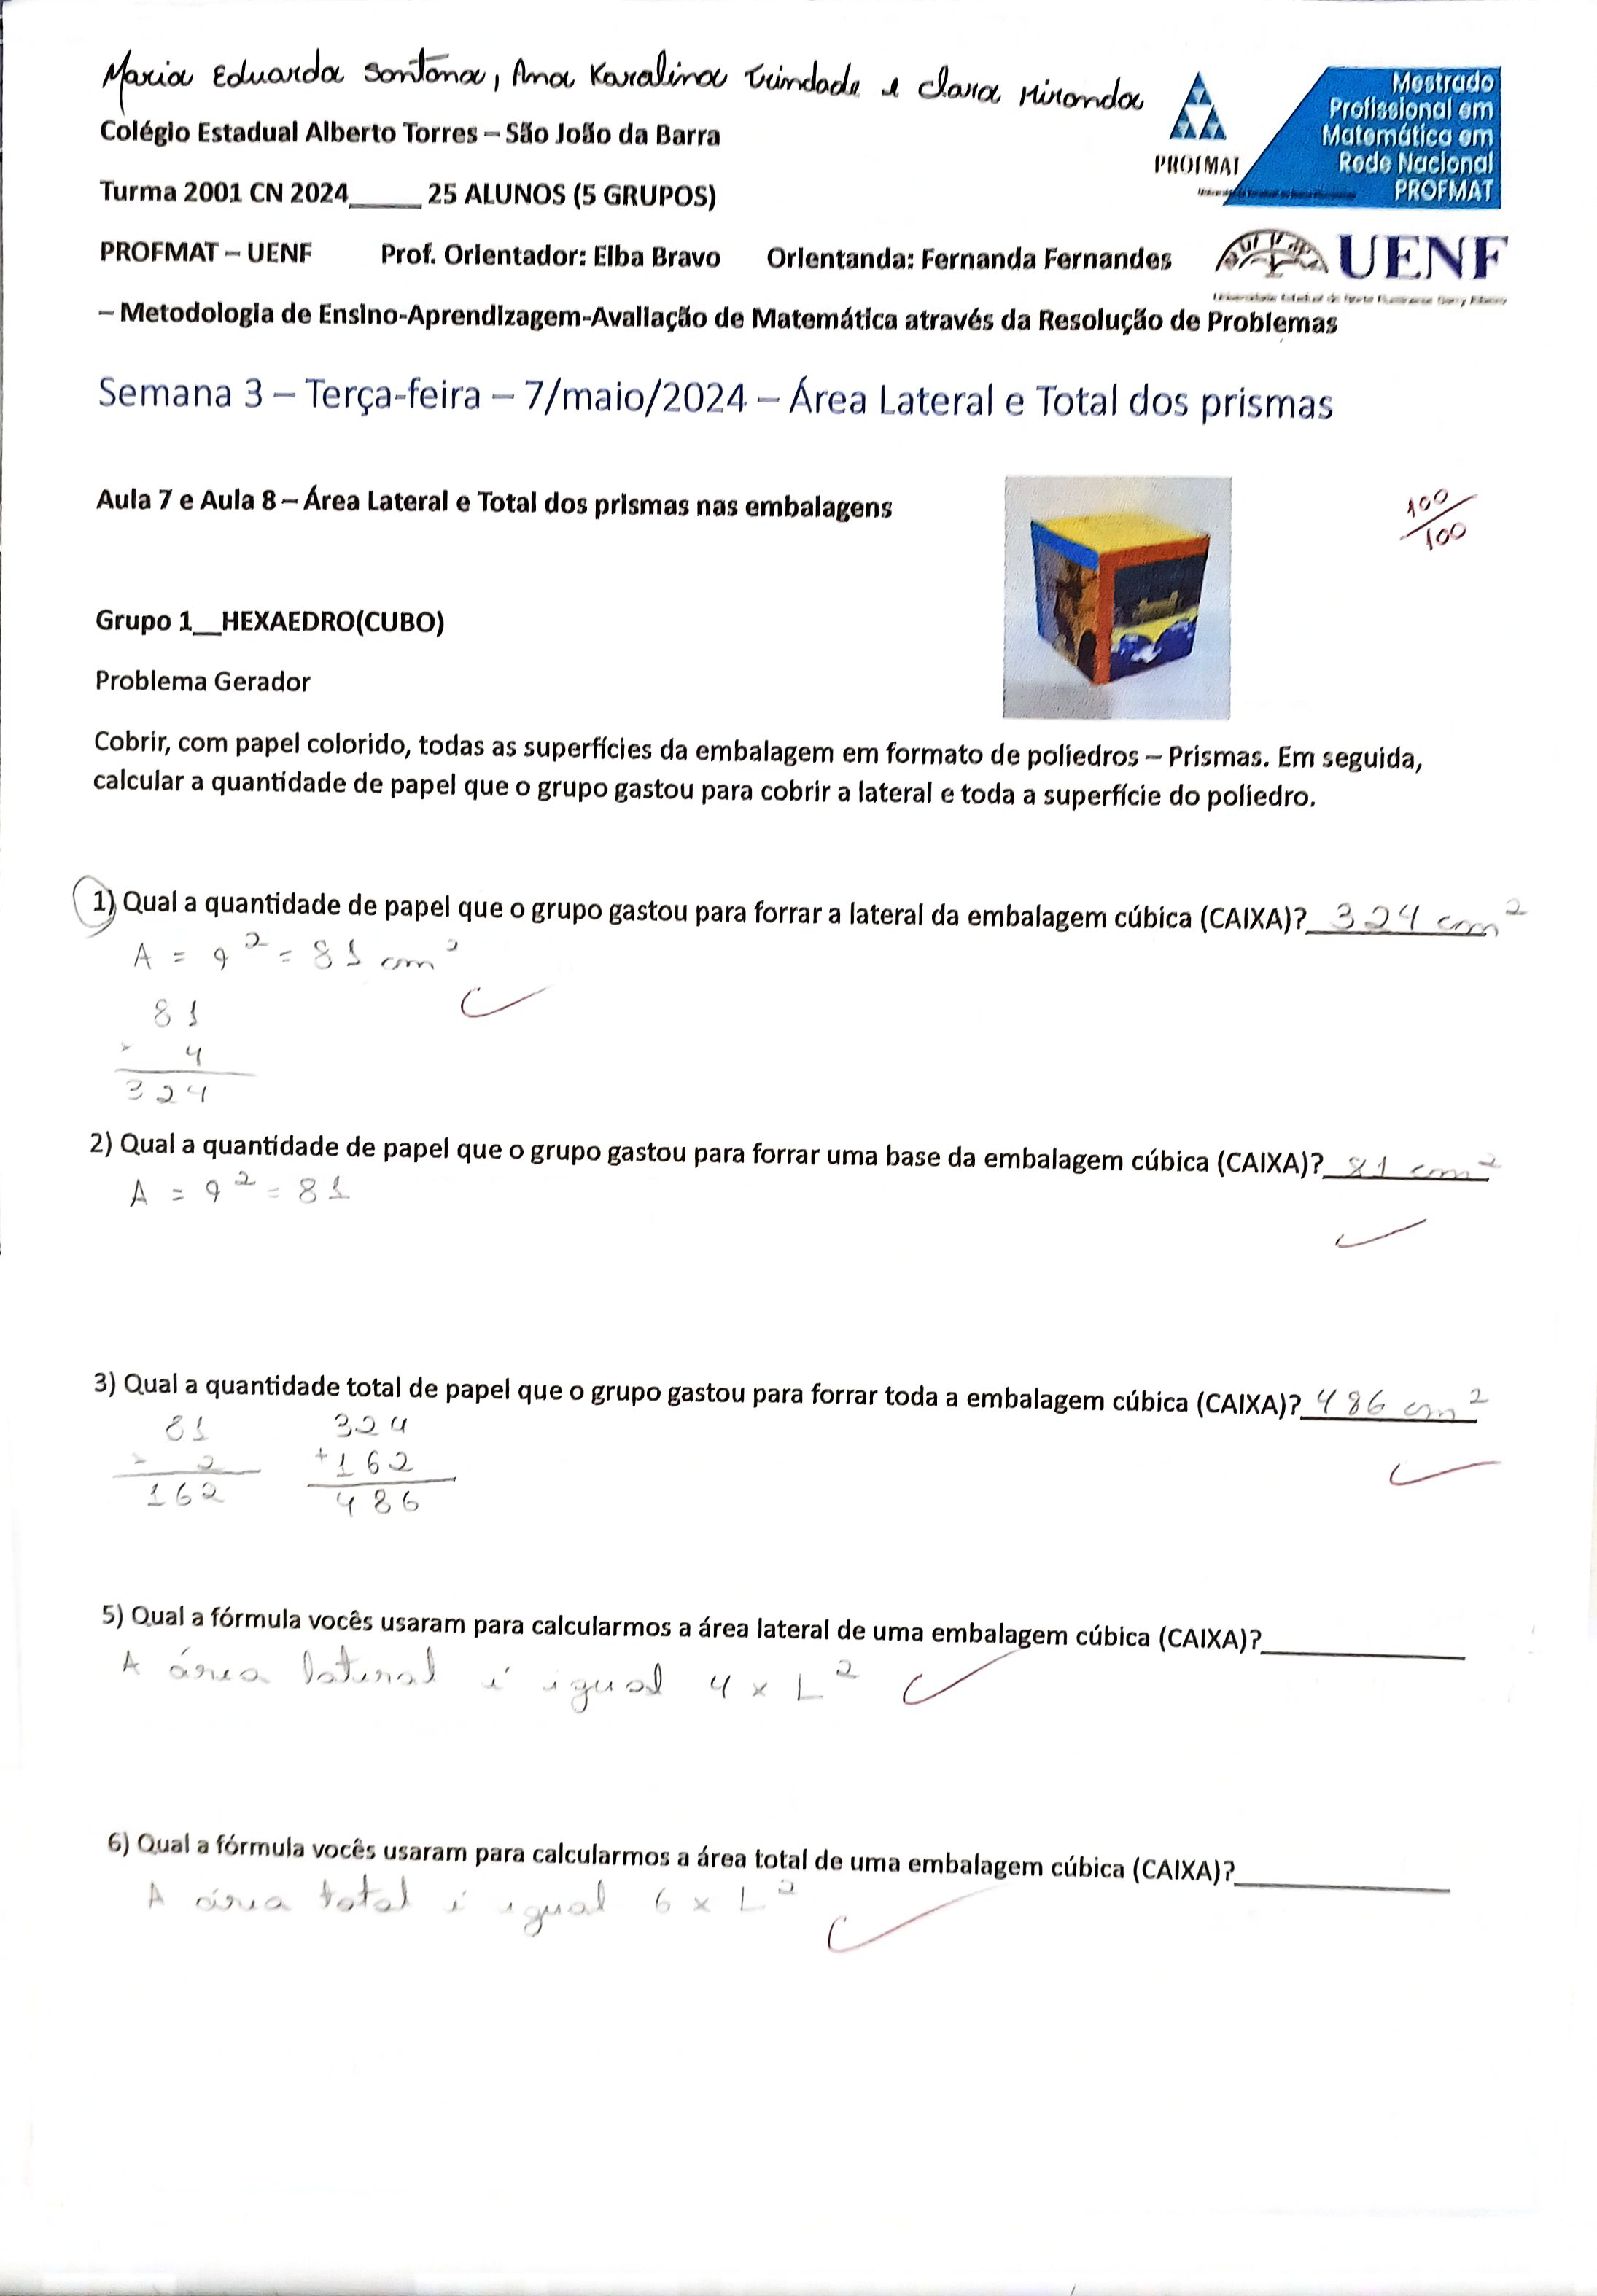 Maria Eduarda Santana, Ana Karalina Trindade e Clara Miranda
Mestrado
Profissional em
Matemática em
Rede Nacional
PROFMAT
PROFMAT
Colégio Estadual Alberto Torres – São João da Barra
Turma 2001 CN 2024_____ 25 ALUNOS (5 GRUPOS)
PROFMAT – UENF Prof. Orientador: Elba Bravo Orientanda: Fernanda Fernandes
UENF
Universidade Estadual do Norte Fluminense Darcy Ribeiro
– Metodologia de Ensino-Aprendizagem-Avaliação de Matemática através da Resolução de Problemas
Semana 3 – Terça-feira – 7/maio/2024 – Área Lateral e Total dos prismas
Aula 7 e Aula 8 – Área Lateral e Total dos prismas nas embalagens
100/100
Grupo 1__HEXAEDRO(CUBO)
Problema Gerador
Cobrir, com papel colorido, todas as superfícies da embalagem em formato de poliedros – Prismas. Em seguida,
calcular a quantidade de papel que o grupo gastou para cobrir a lateral e toda a superfície do poliedro.
1) Qual a quantidade de papel que o grupo gastou para forrar a lateral da embalagem cúbica (CAIXA)? 324 cm²
A = 9² = 81 cm²
81
× 4
324
2) Qual a quantidade de papel que o grupo gastou para forrar uma base da embalagem cúbica (CAIXA)? 81 cm²
A = 9² = 81
3) Qual a quantidade total de papel que o grupo gastou para forrar toda a embalagem cúbica (CAIXA)? 486 cm²
81 324
× 2 + 162
162 486
5) Qual a fórmula vocês usaram para calcularmos a área lateral de uma embalagem cúbica (CAIXA)?______________
A área lateral é igual 4 x L²
6) Qual a fórmula vocês usaram para calcularmos a área total de uma embalagem cúbica (CAIXA)?______________
A área total é igual 6 x L²